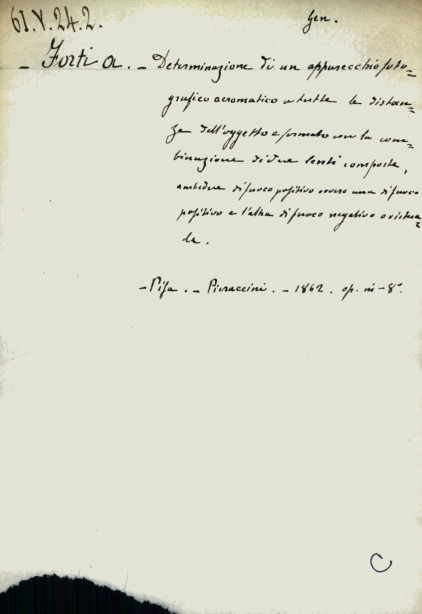 61.V.24.2.
Gen.
- Forti A. - Determinazione di un apparecchio foto=
grafico acromatico a tutte le distan=
ze dell'oggetto e formato con la com=
binazione di due lenti composte,
ambedue di fuoco positivo ovvero una di fuoco
positivo e l'altra di fuoco negativo o virtua=
le.
- Pisa. - Pieraccini. - 1862. op. in-8°.
C